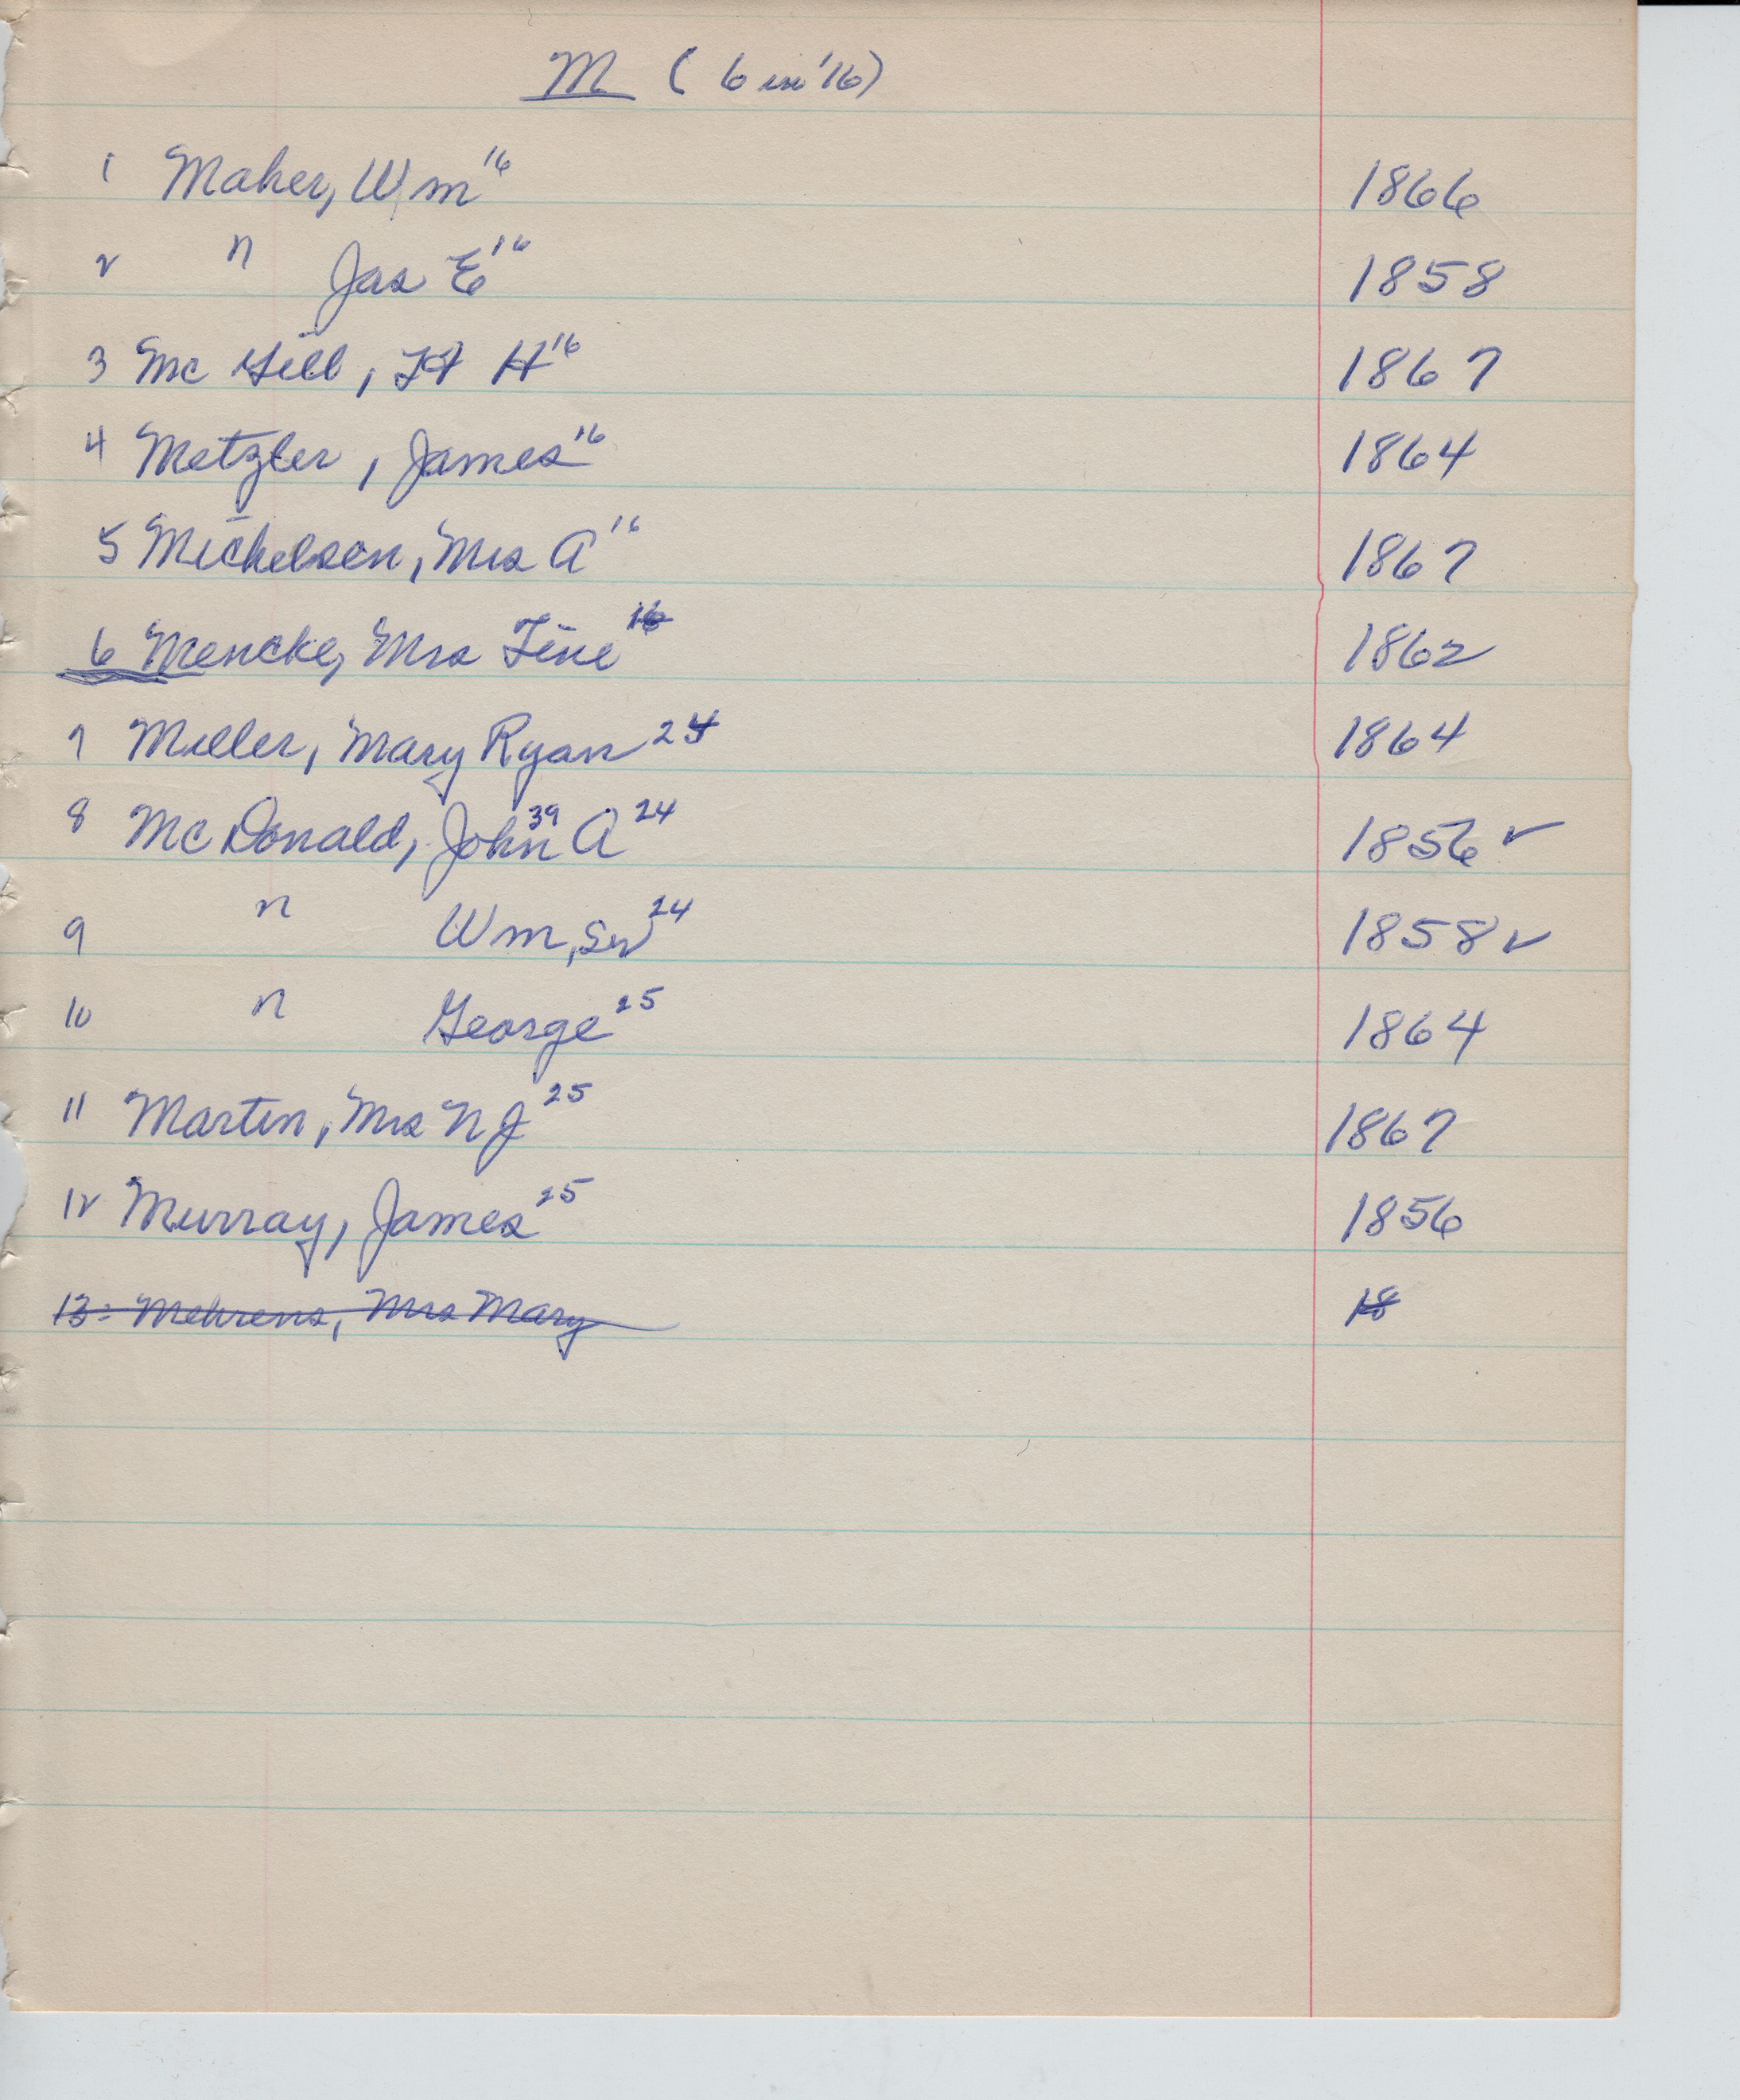 M (6 in '16)
1 Maher, Wm 16 1866
2 " Jas E 16 1858
3 McGill, H 16 1867
4 Metzler, James 16 1864
5 Mickelsen, Mrs A 16 1867
6 Mencke, Mrs Tine 16 1862
7 Miller, Mary Ryan 24 1864
8 McDonald, John A 39 24 1856 ✓
9 " Wm, Sr 24 1858 ✓
10 " George 25 1864
11 Martin, Mrs N J 25 1867
12 Murray, James 25 1856
13 Mehrens, Mrs Mary 18